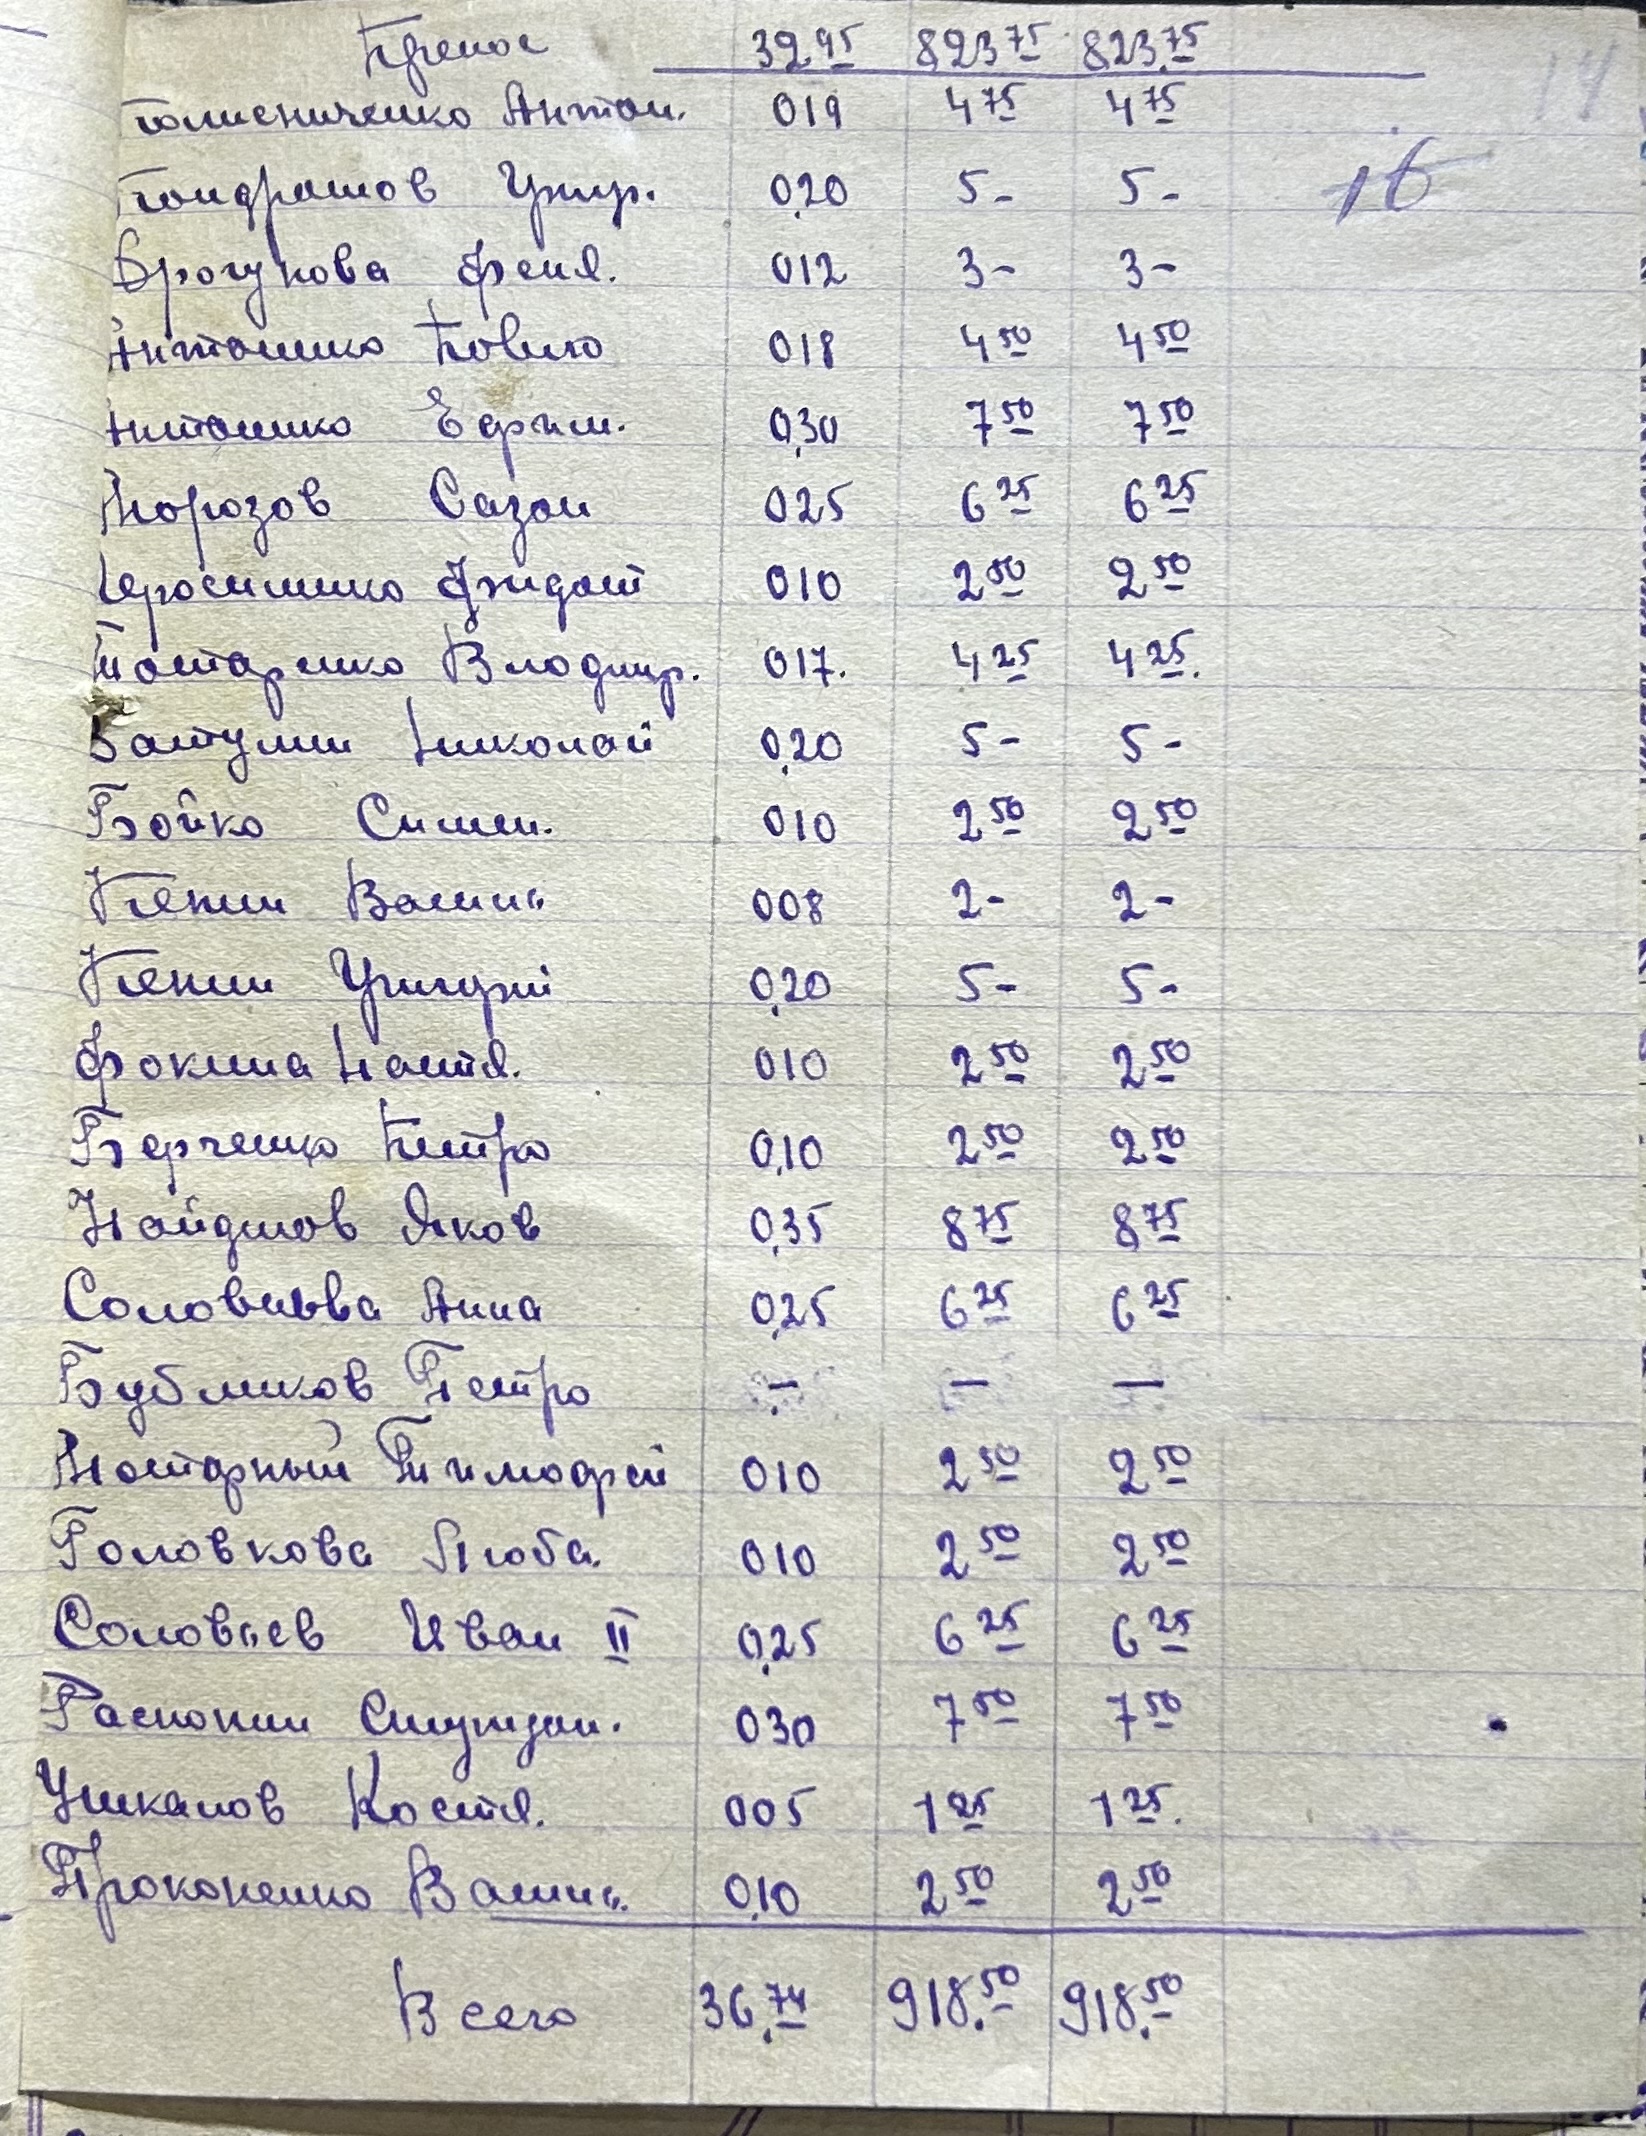 Пренос 32.95 823.75 823.75
14
Колисниченко Антон. 019 4 75 4 75
Кондрашов Григр. 0,20 5- 5-
16
Брогунова Феня. 012 3- 3-
Антошико Павло 018 4 50 4 50
Антошико Ефим. 0,30 7 50 7 50
Морозов Сазон 025 6 25 6 25
Геросимико 010 2 50 2 50
Костарико Влодимр. 017. 4 25 4 25.
Ватулин Николай 0,20 5- 5-
Бойко Симен. 010 2 50 2 50
Пенин Васили 008 2- 2-
Пенин Григорий 0,20 5- 5-
Фокина Настя. 010 2 50 2 50
Берченко Питро 0,10 2 50 2 50
Найдинов Яков 0,35 8 75 8 75
Соловиьва Анна 0,25 6 25 6 25
Бубликов Петро — — —
Нотарный Тимофей 010 2 50 2 50
Головкова Люба. 010 2 50 2 50
Соловьев Иван II 0,25 6 25 6 25
Распопин 030 7 50 7 50
Ушкалов Костя. 005 1 25 1 25.
Прокопенко Васили. 0,10 2 50 2 50
Всего 36.74 918.50 918.50